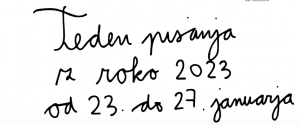 Teden pisanja
z roko 2023
od 23. do 27. januarja